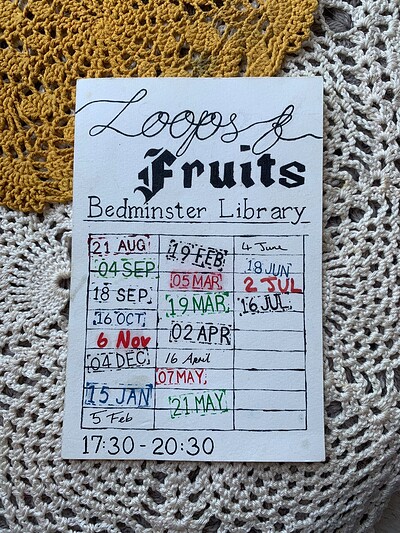 Loops &
Fruits
Bedminster Library
21 AUG
04 SEP
18 SEP
16 OCT
6 Nov
04 DEC
15 JAN
5 Feb
19 FEB
05 MAR
19 MAR
02 APR
16 April
07 MAY
21 MAY
4 June
18 JUN
2 JUL
16 JUL
17:30 - 20:30